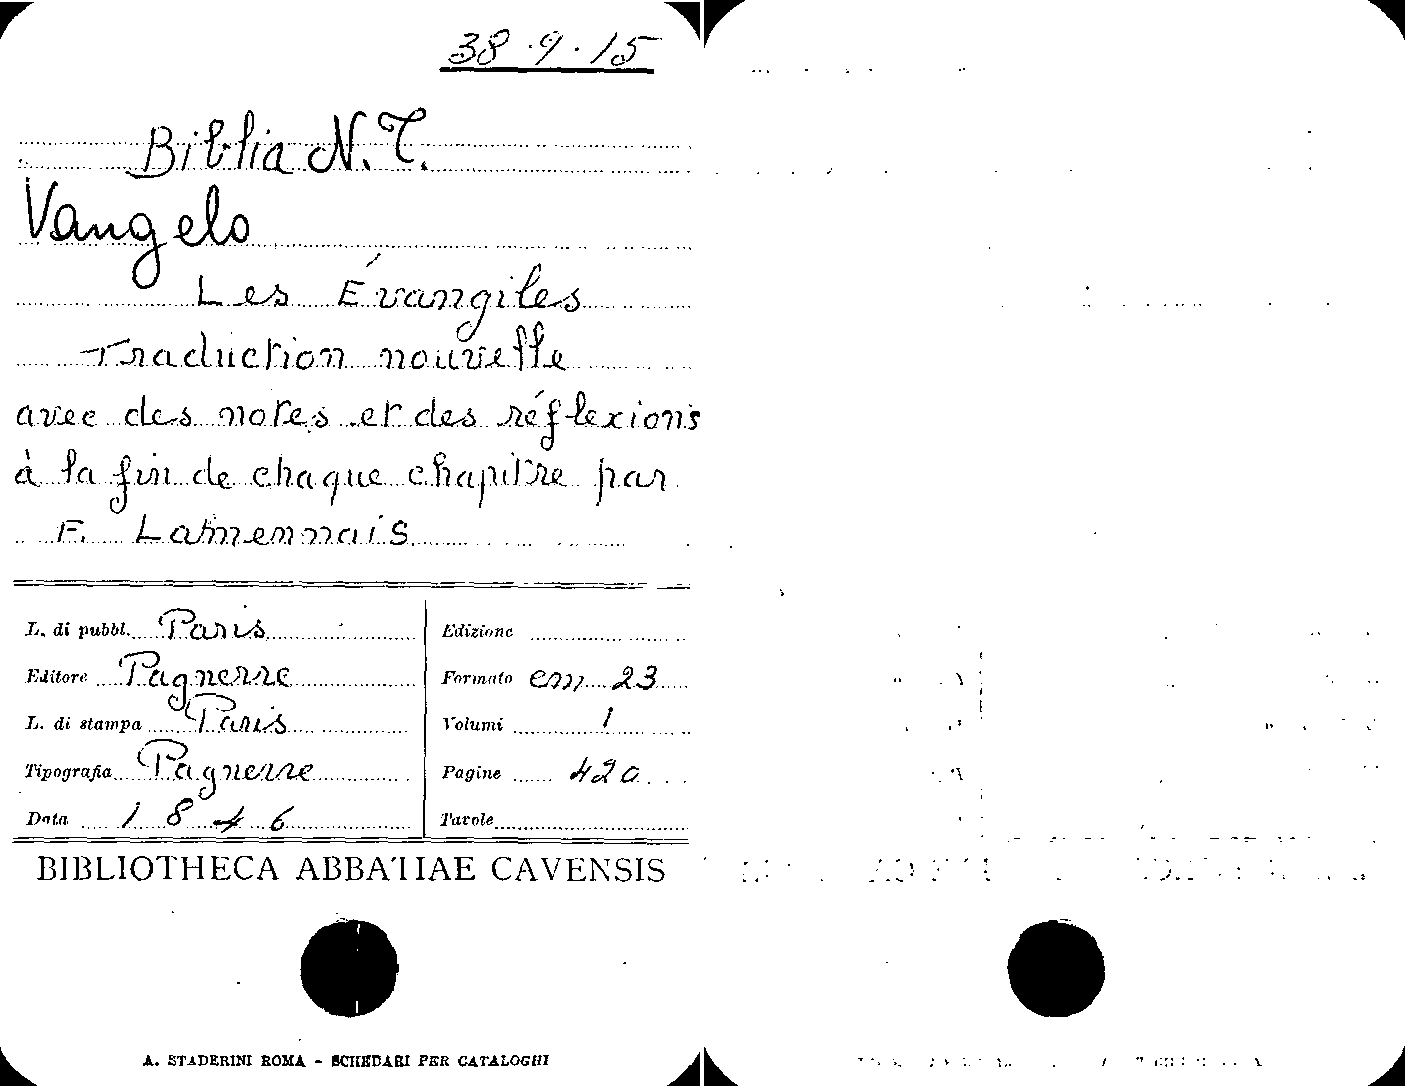 38.9.15
Biblia N.T.
Vangelo
Les Évangiles
Traduction nouvelle
avec des notes et des réflexions
à la fin de chaque chapitre par
F. Lamennais
L. di pubbl. Paris
Editore Pagnerre
L. di stampa Paris
Tipografia Pagnerre
Data 1846
Edizione
Formato cm 23
Volumi 1
Pagine 420
Tavole
BIBLIOTHECA ABBATIAE CAVENSIS
A. STADERINI ROMA - SCHEDARI PER CATALOGHI